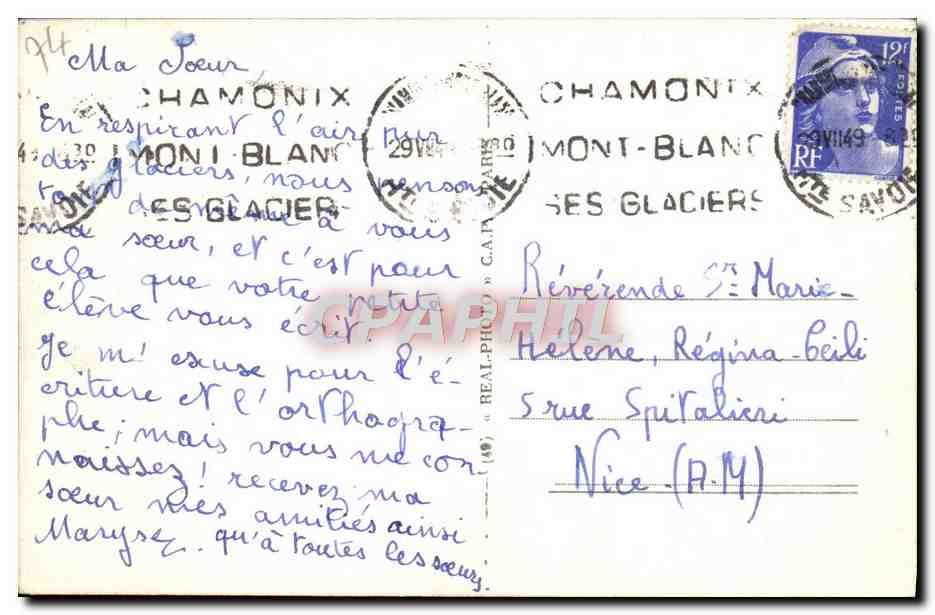 74
Ma Sœur
En respirant l'air pur
des glaciers, nous pensons
de même à vous
ma sœur, et c'est pour
cela que votre petite
élève vous écrit.
Je m'excuse pour l'é-
criture et l'orthogra-
phe; mais vous me con-
naissez! recevez ma
sœur mes amitiés ainsi
Maryse qu'à toutes les sœurs.
CHAMONIX
MONT-BLANC
SES GLACIERS
29 VII 49
SAVOIE
CHAMONIX
MONT-BLANC
SES GLACIERS
29 VII 49
SAVOIE
12F
POSTES
RF
(49) « REAL-PHOTO » C.A.P. PARIS
CPAPHIL
Révérende Sr Marie-
Hélène, Régina-Cœli
5 rue Spitalieri
Nice (A.M)